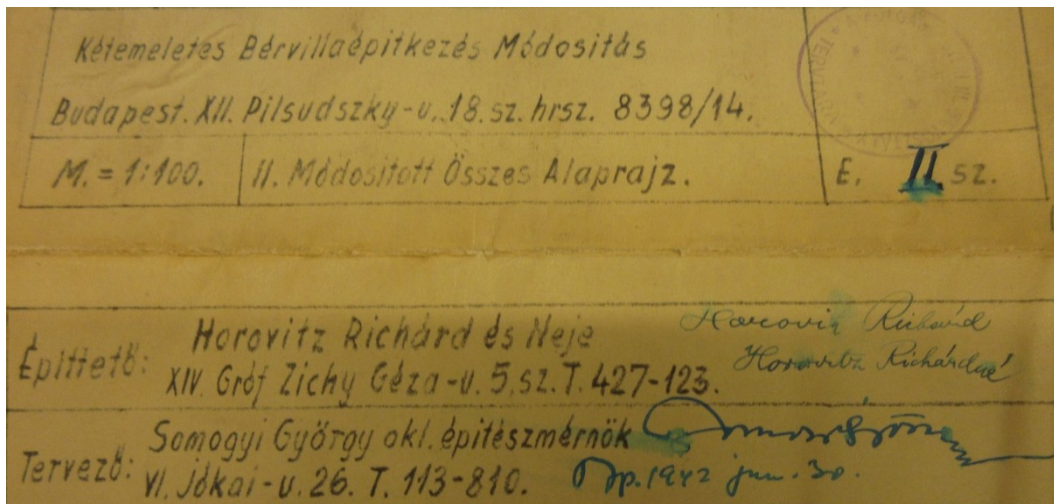 Kétemeletes Bérvillaépitkezés Módositás
Budapest. XII. Pilsudszky-u. 18. sz. hrsz. 8398/14.
M. = 1:100. II. Módositott Összes Alaprajz. E. II. sz.
Horovitz Richárd és Neje
Épittető:
XIV. Gróf Zichy Géza-u. 5. sz. T. 427-123.
Horovitz Richárd
Horovitz Richárdné
Somogyi György okl. épitészmérnök
Tervező:
VI. Jókai-u. 26. T. 113-810.
Bp. 1942 jun. 30.